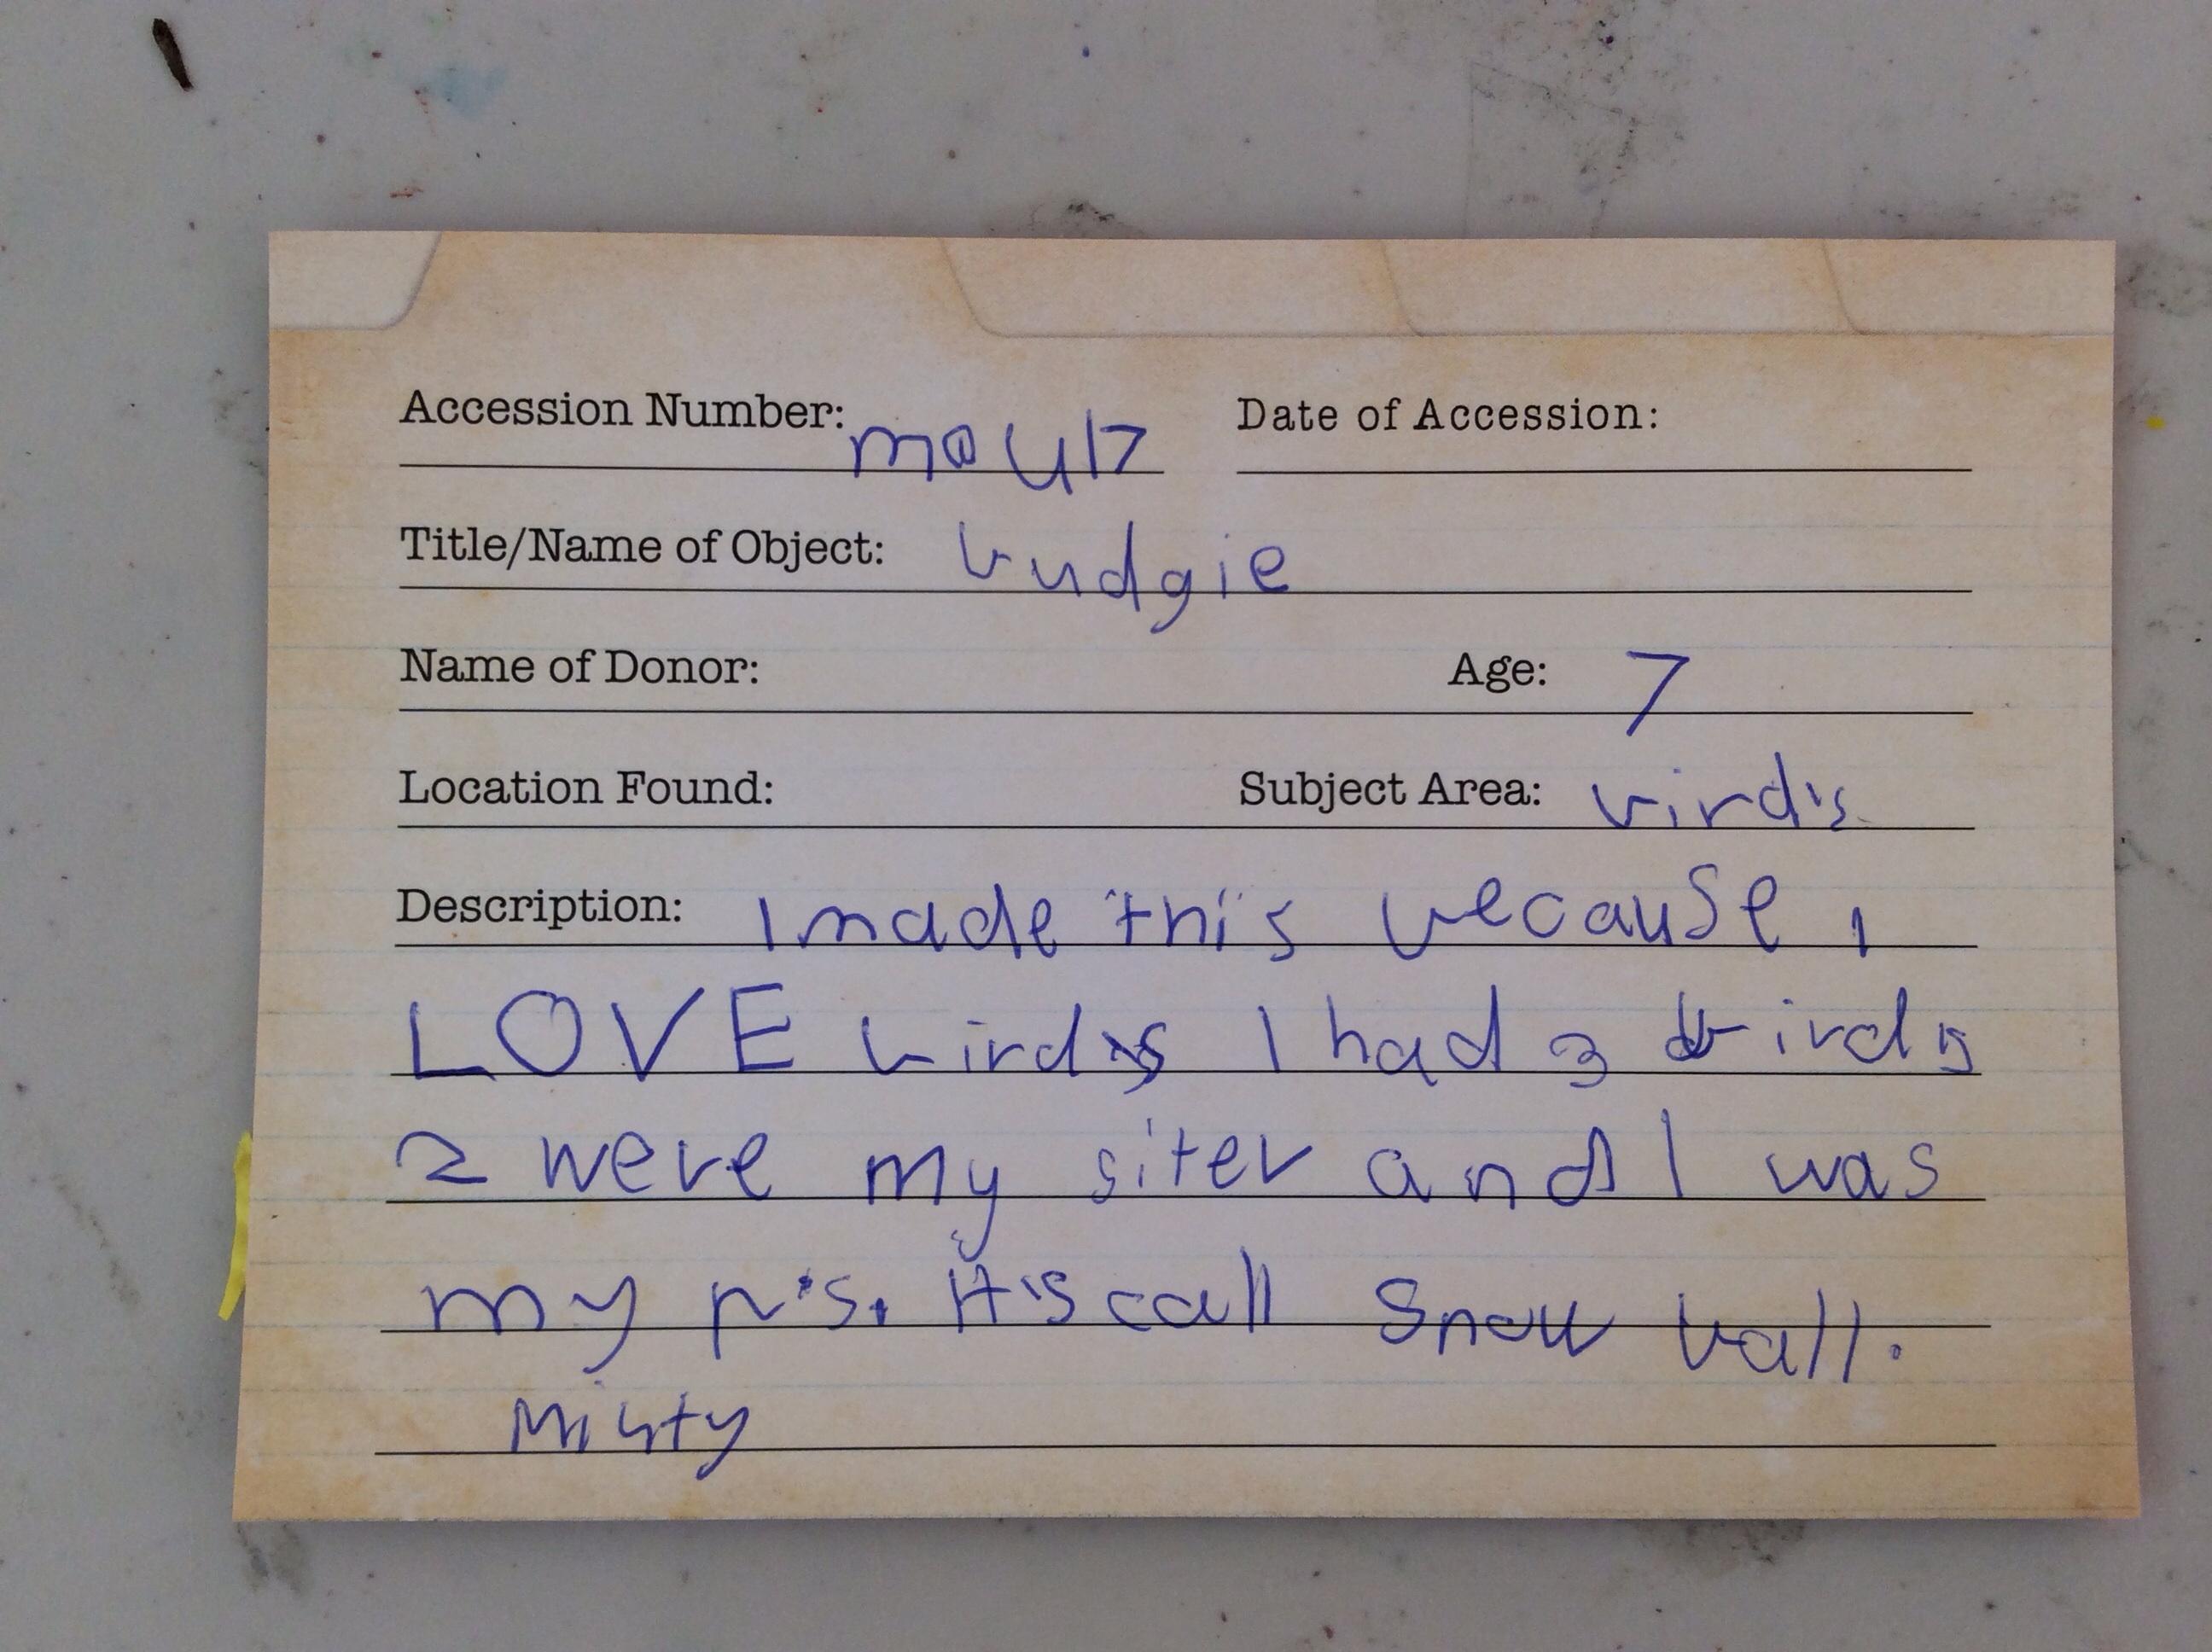 Accession Number: mou17 Date of Accession:
Title/Name of Object: budgie
Name of Donor: Age: 7
Location Found: Subject Area: bird's
Description: I made this because I
LOVE birds I had 3 birds
2 were my siter and I was
my n's. It's call Snow ball.
Misty